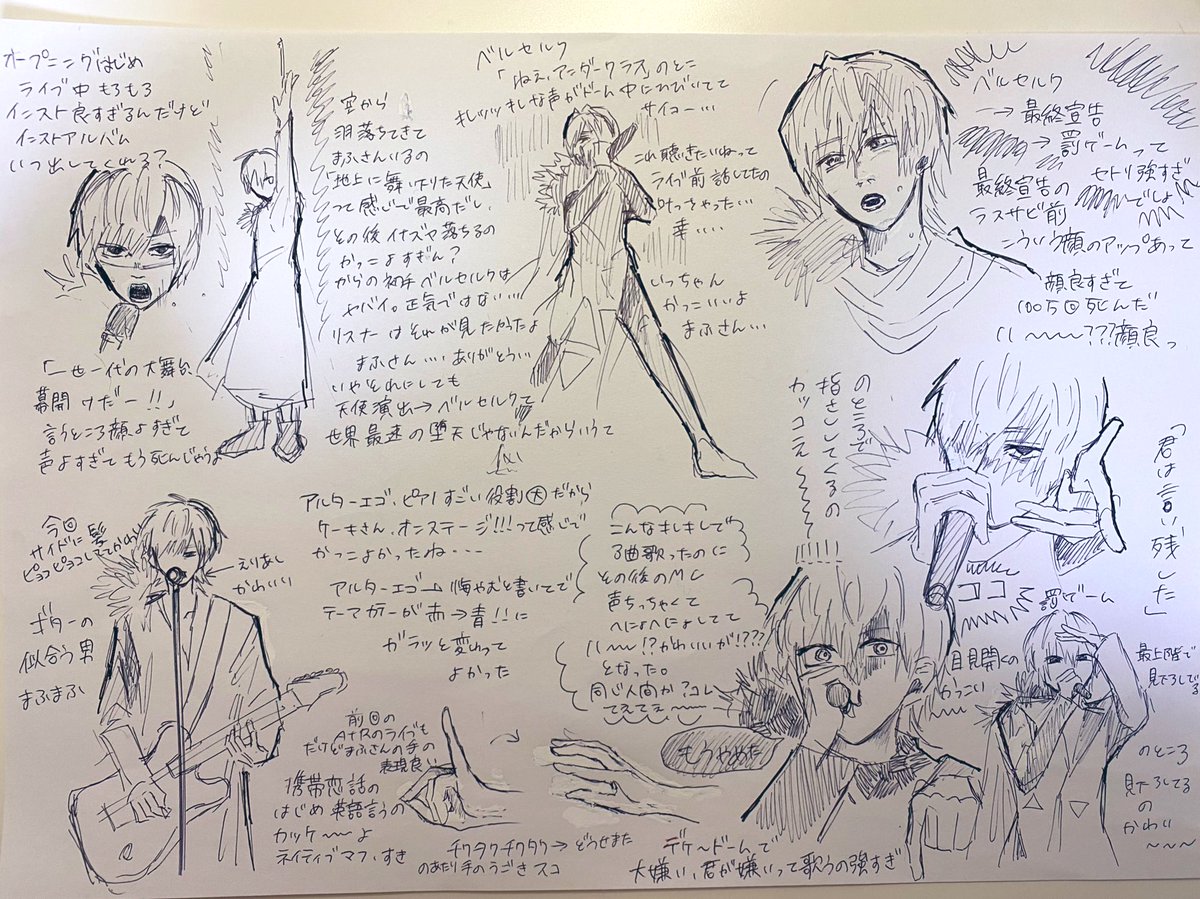 オープニングはじめ
ライブ中もろもろ
インスト良すぎるんだけど
インストアルバム
いつ出してくれる?
「一世一代の大舞台、
幕開けだー!!」
言うところ顔よすぎて
声よすぎてもう死んじゃうよ
空から
羽落ちてきて
まふさんいるの
「地上に舞い下りた天使」
って感じで最高だし、
その後イナズマ落ちるの
かっこよすぎん?
からの初手ベルセルクは
ヤバイ。正気ではない…
リスナーはそれが見たかったよ
まふさん…ありがとう…
いやそれにしても
天使演出→ベルセルクて
世界最速の堕天じゃないんだからいうて
ベルセルク
「ねぇ、アンダークラス」のとこ
キレッッキレな声がドーム中にひびいてて
サイコー…
これ聴きたいねって
ライブ前話してたの
叶っちゃったい
幸…
いっちゃん
かっこいいよ
まふさん…
ベルセルク
→最終宣告
→罰ゲームって
セトリ強すぎ
でしょ
最終宣告の
ラスサビ前
こういう顔のアップあって
顔良すぎて
1005回死んだ
ハ〜〜???顔良っ
「君は言い残した」
のところで
指さしてくるの
カッコエぇ〜〜!!!!!
ココ
今回
サイドに髪
ピョコピョコしててかわいい
えりあし
かわいい
ギターの
似合う男
まふまふ
アルターエゴ、ピアノすごい役割大だから
ケーキさん、オンステージ!!!って感じで
かっこよかったね…
アルターエゴ→悔やむと書いてで
テーマカラーが赤→青!!に
ガラッと変わって
よかった
こんなキレキレで
3曲歌ったのに
その後のMC
声ちっちゃくて
へにょへにょしてて
ハ〜〜!?かわいいが!???
となった。
同じ人間か?コレ
てぇてぇ〜〜
前回の
A+Rのライブも
だけどまふさんの手の
表現良い
携帯恋話の
はじめ英語言うの
カッケ〜〜よ
ネイティブマフ、すき
チクタクチクタク→どうせまた
のあたり手のうごきスコ
もうやめた
デケ〜ドームで
大嫌い、君が嫌いって歌うの強すぎ
罰ゲーム
目見開くの
かっこい
最上階で
見下ろしてる
のところ
見下ろしてる
の
かわい
〜〜〜